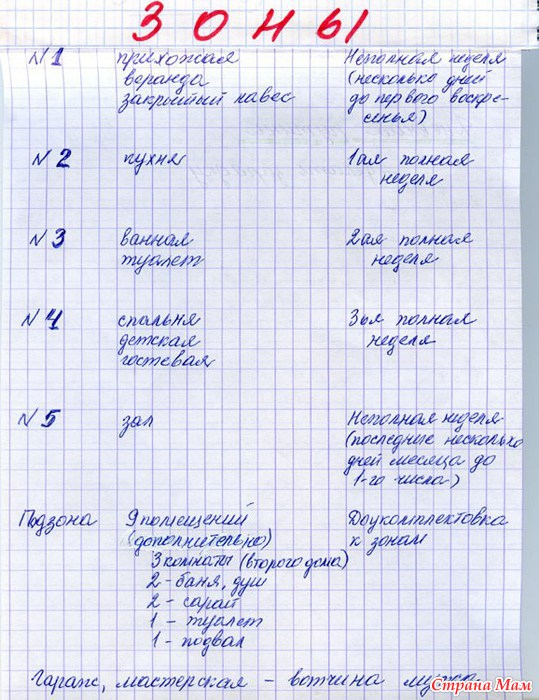 ЗОНЫ
№1 прихожая Неполная неделя
веранда (несколько дней
закрытый навес до первого воскре-
сенья)
№2 кухня 1ая полная
неделя
№3 ванная 2ая полная
туалет неделя
№4 спальня 3ья полная
детская неделя
гостевая
№5 зал Неполная неделя
(последние несколько
дней месяца до
1-го числа)
Подзона 9 помещений Доукомплектовка
(дополнительно) к зонам
3 комнаты (второго дома)
2 - баня, душ
2 - сарай
1 - туалет
1 - подвал
Гараж, мастерская - вотчина мужа
Страна Мам